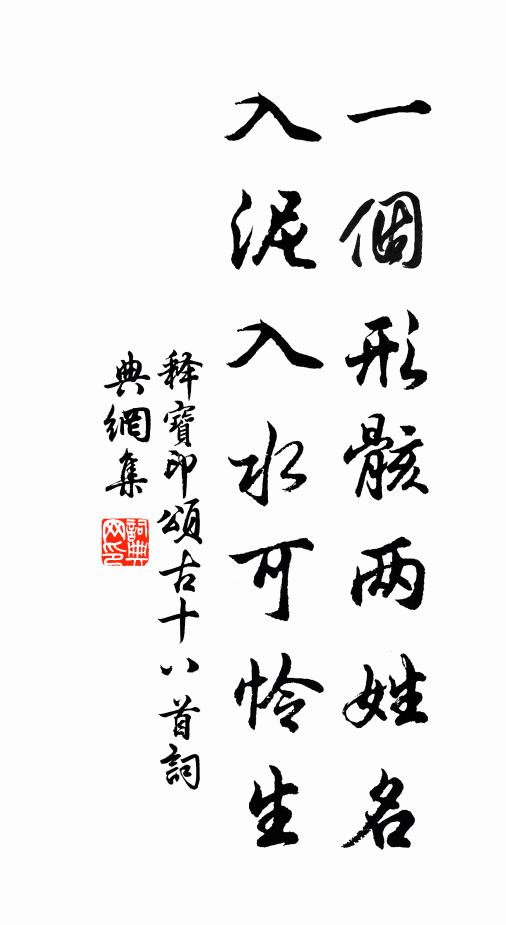 一個形骸两姓名
入泥入水可怜生
释寶印頌古十八首詞
典網集
詞典网印